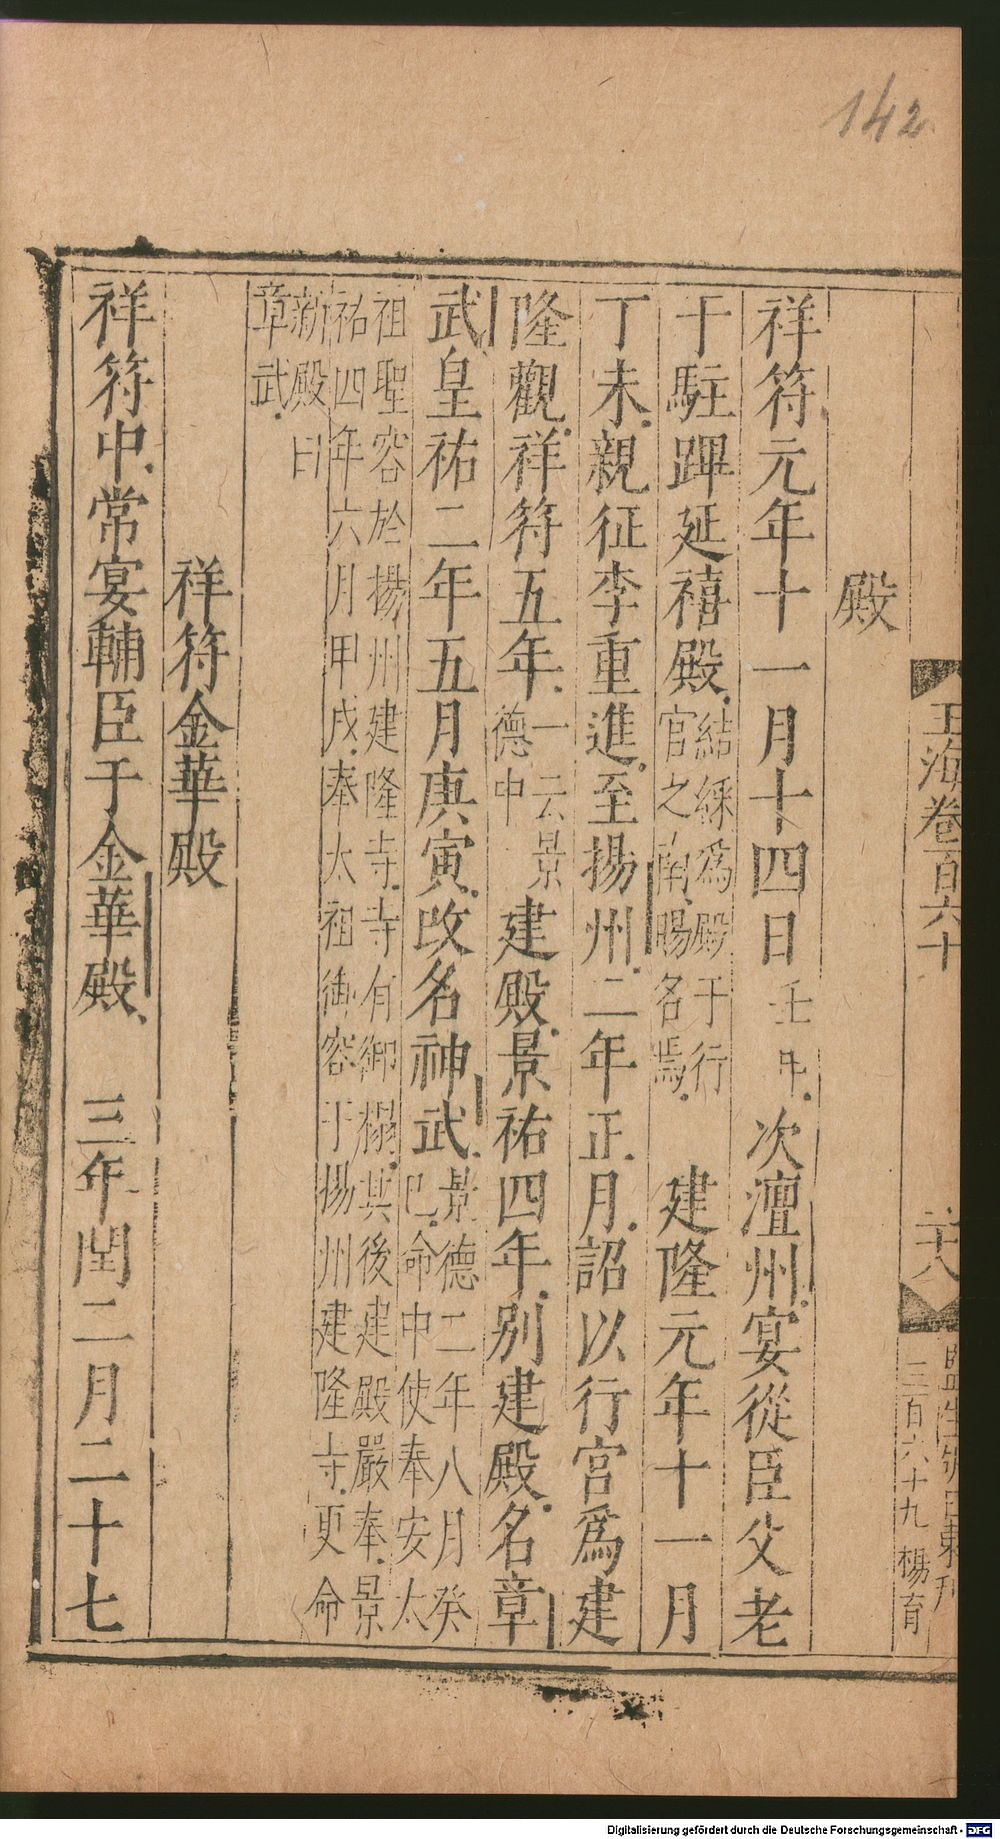 142
玉海卷百六十
二十八
三百六十九 楊育
殿
祥符元年十一月十四日壬申次澶州宴從臣父老
于駐蹕延禧殿結綵爲殿于行
官之南賜名焉建隆元年十一月
丁未親征李重進至揚州二年正月詔以行宮爲建
隆觀祥符五年一云景
德中建殿景祐四年別建殿名章
武皇祐二年五月庚寅改名神武景德二年八月癸
巳命中使奉安太
祖聖容於揚州建隆寺寺有御榻其後建殿嚴奉景
祐四年六月甲戌奉太祖御容于揚州建隆寺更命
新殿曰
章武
祥符金華殿
祥符中常宴輔臣于金華殿 三年閏二月二十七
Digitalisierung gefördert durch die Deutsche Forschungsgemeinschaft - DFG